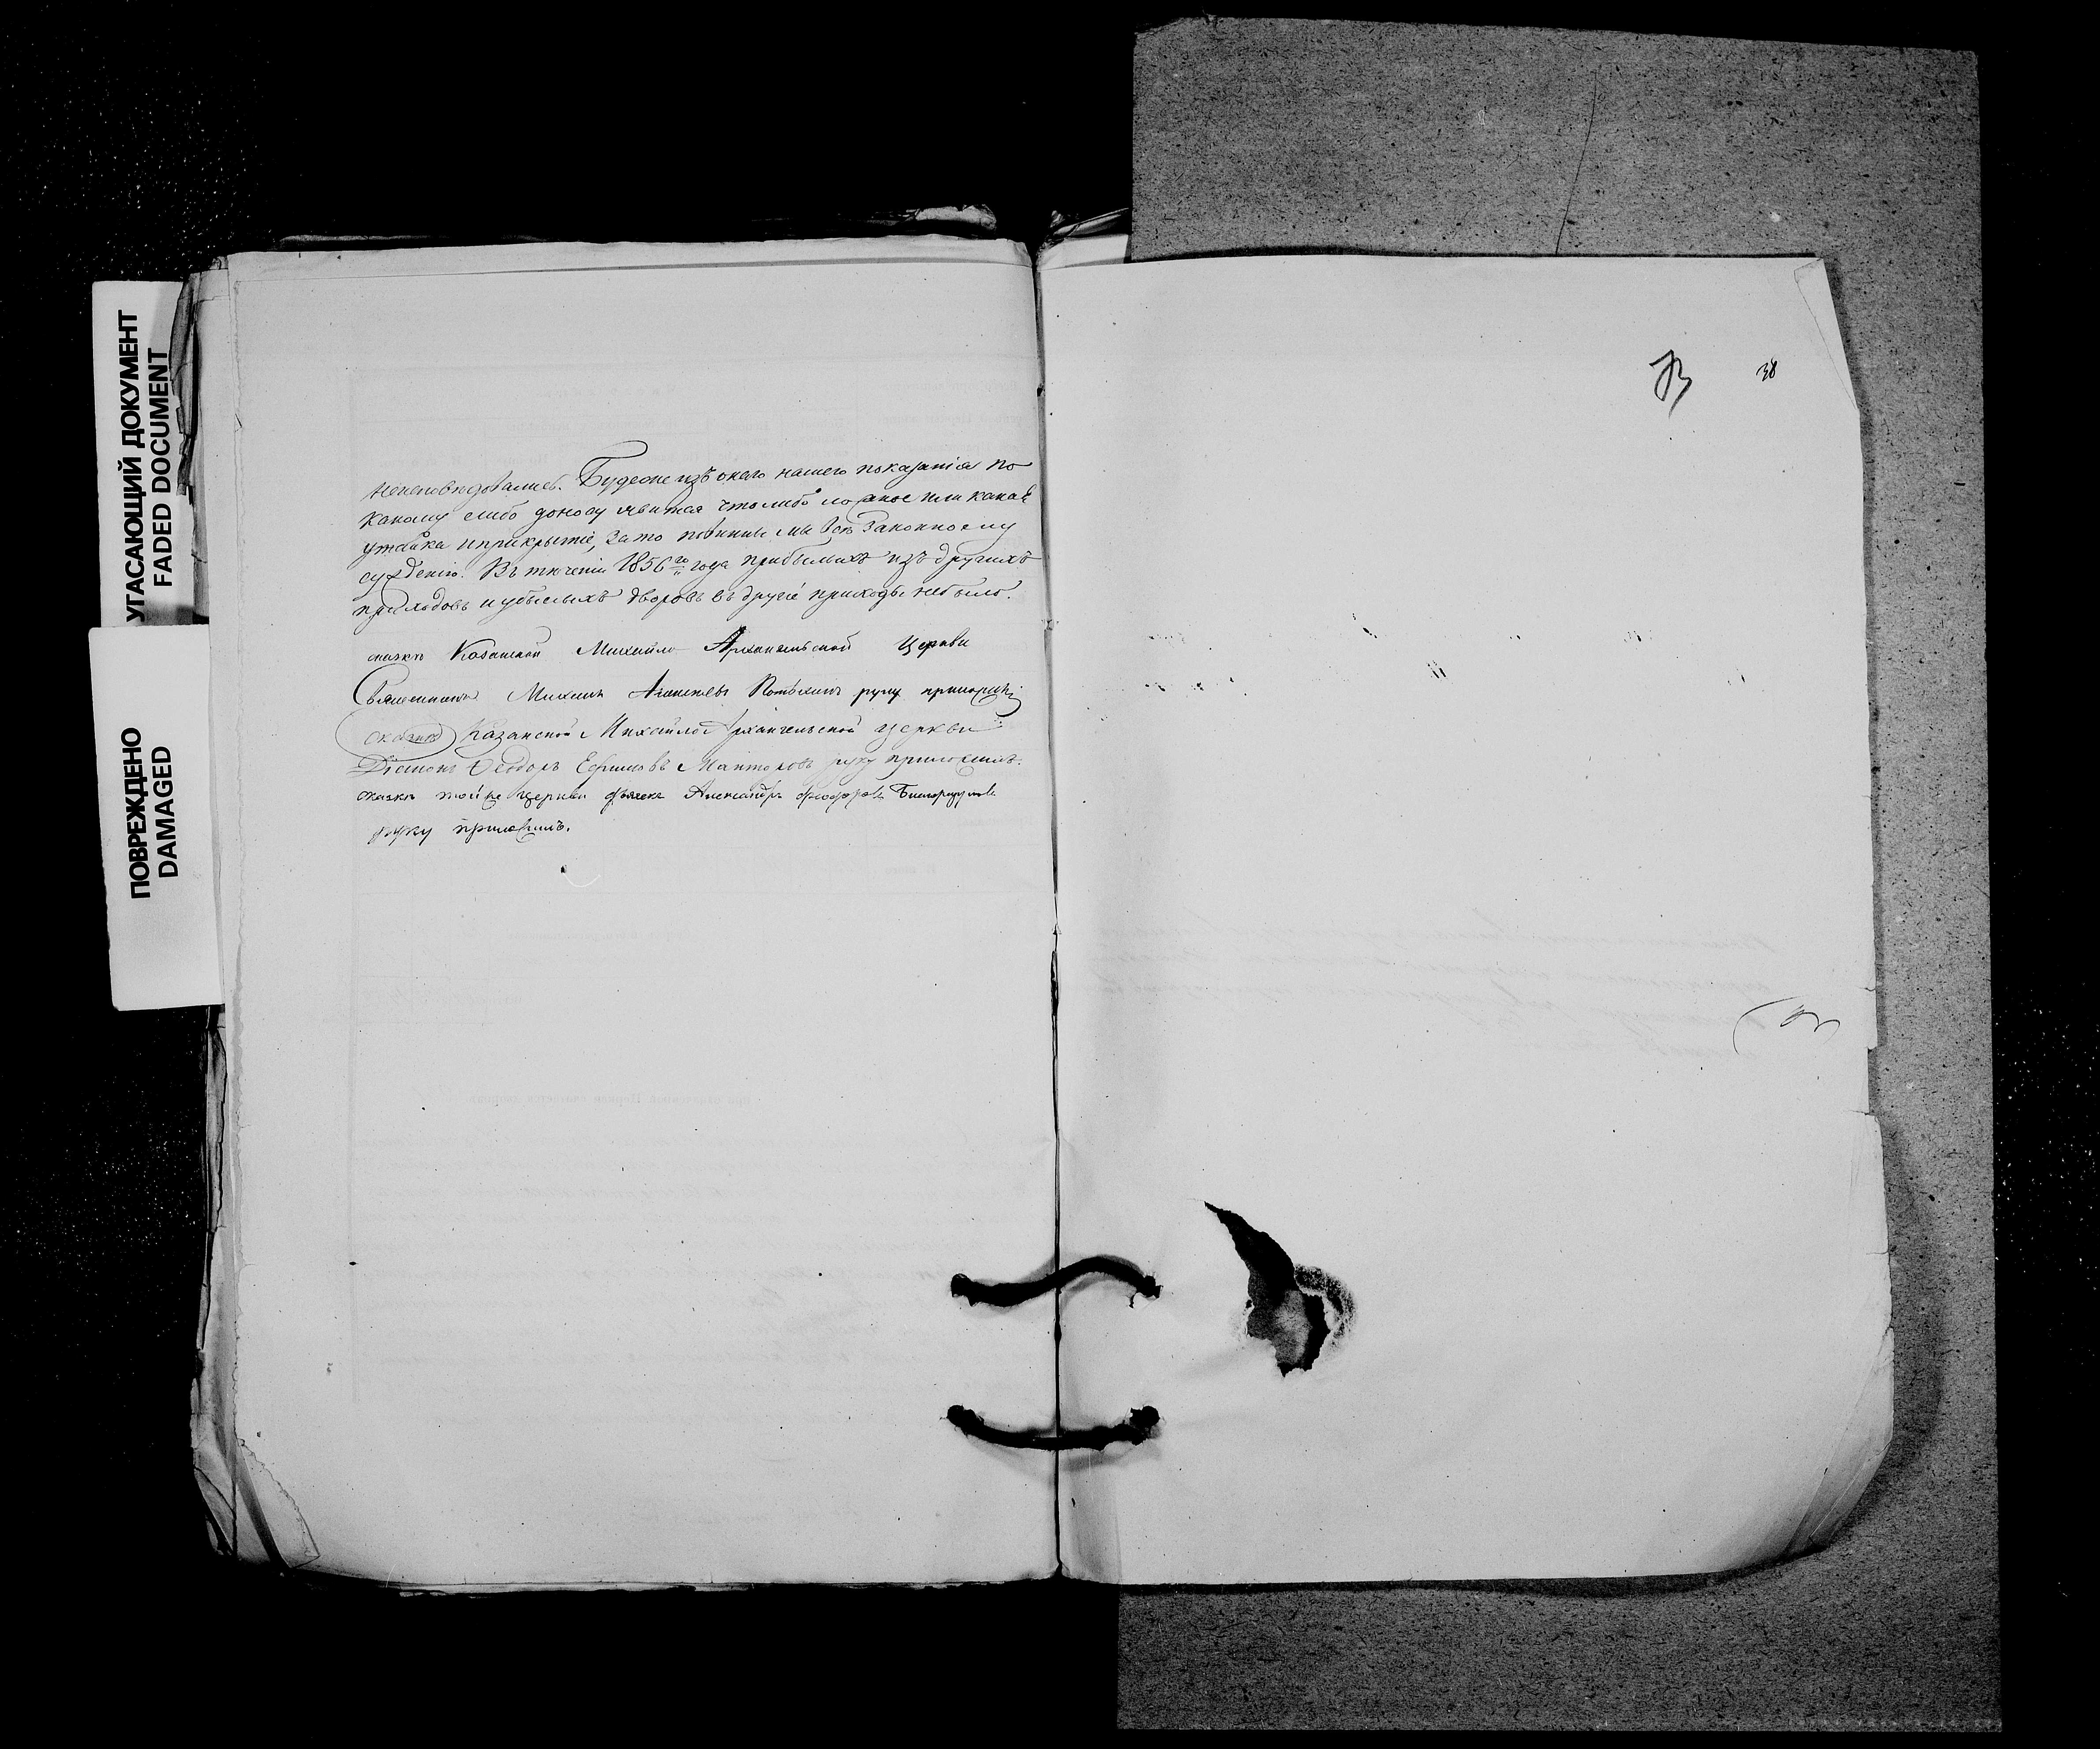 УГАСАЮЩИЙ ДОКУМЕНТ
FADED DOCUMENT
ПОВРЕЖДЕНО
DAMAGED
неисповѣдовались. Будеже изъ онаго нашего показанія по
какому либо доносу явится что либо ложное или какая
утайка и прикрытіе, за то повинны мы всѣ законному
сужденію. Въ теченіи 1856го года прибылыхъ изъ другихъ
приходовъ и убылыхъ дворовъ въ другіе приходы небыло.
Казанской Михайло Архангельской Церкви
Священникъ Михаилъ руку
Казанской Михайло Архангельской церкви
Діаконъ Ѳеодоръ Ефимовъ руку приложилъ.
тойже церкви Александръ
руку приложилъ.
38